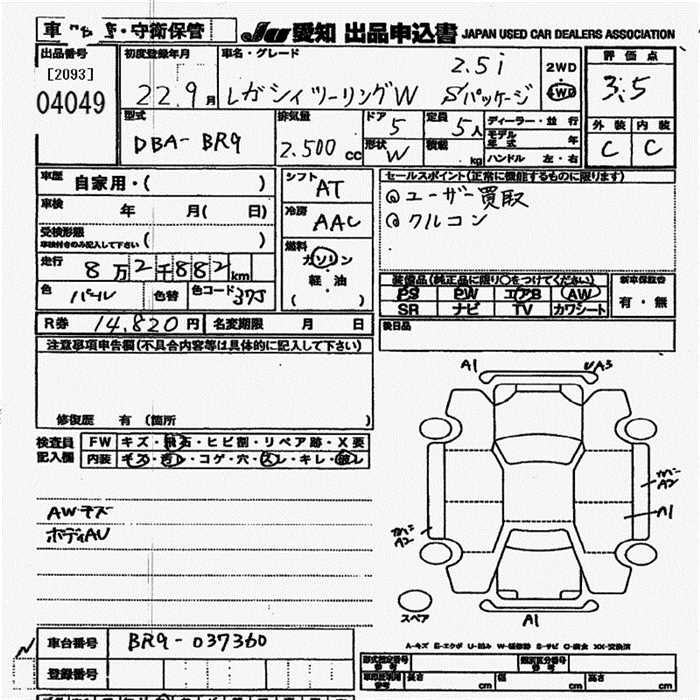 車 ・守衛保管 JU 愛知 出品申込書 JAPAN USED CAR DEALERS ASSOCIATION
出品番号 初度登録年月 車名・グレード 評価点
[2093] 2.5i 2WD
04049 22.9月 レガシィツーリングW Sパッケージ 4WD 3.5
型式 排気量 ドア 5 定員 5人 ディーラー・並行 外装 内装
DBA-BR9 2.500cc 形状 W 積載 kg モデル年式 年 C C
ハンドル 左・右
車歴 自家用・( ) シフト AT セールスポイント(正常に機能するものに限ります)
車検 年 月( 日) 冷房 AAC @ユーザー買取
受検形態 車検付きのみ記入して下さい ( ) @クルコン
走行 8万2千882km 燃料 ガソリン・軽油 ( )
色 パール 色替 色コード 37J
装備品(純正品に限り○をつけてください) 新車保証書
PS PW エアB AW 有・無
SR ナビ TV カワシート
R券 14,820円 名変期限 月 日 後日品
注意事項申告欄(不具合内容等は具体的に記入して下さい)
修復歴 有 (箇所 )
検査員記入欄 FW キズ・飛石・ヒビ割・リペア跡・X要
内装 キズ・汚レ・コゲ・穴・スレ・キレ・破レ
A1
AWキズ
ボディAU
A2
A1
A2
スペア A1
A-キズ E-エクボ U-凹み W-補修跡 S-サビ C-腐食 XX-交換済
車台番号 BR9-037360
登録番号
型式指定番号 類別区分番号
長さ cm 幅 cm 高さ cm